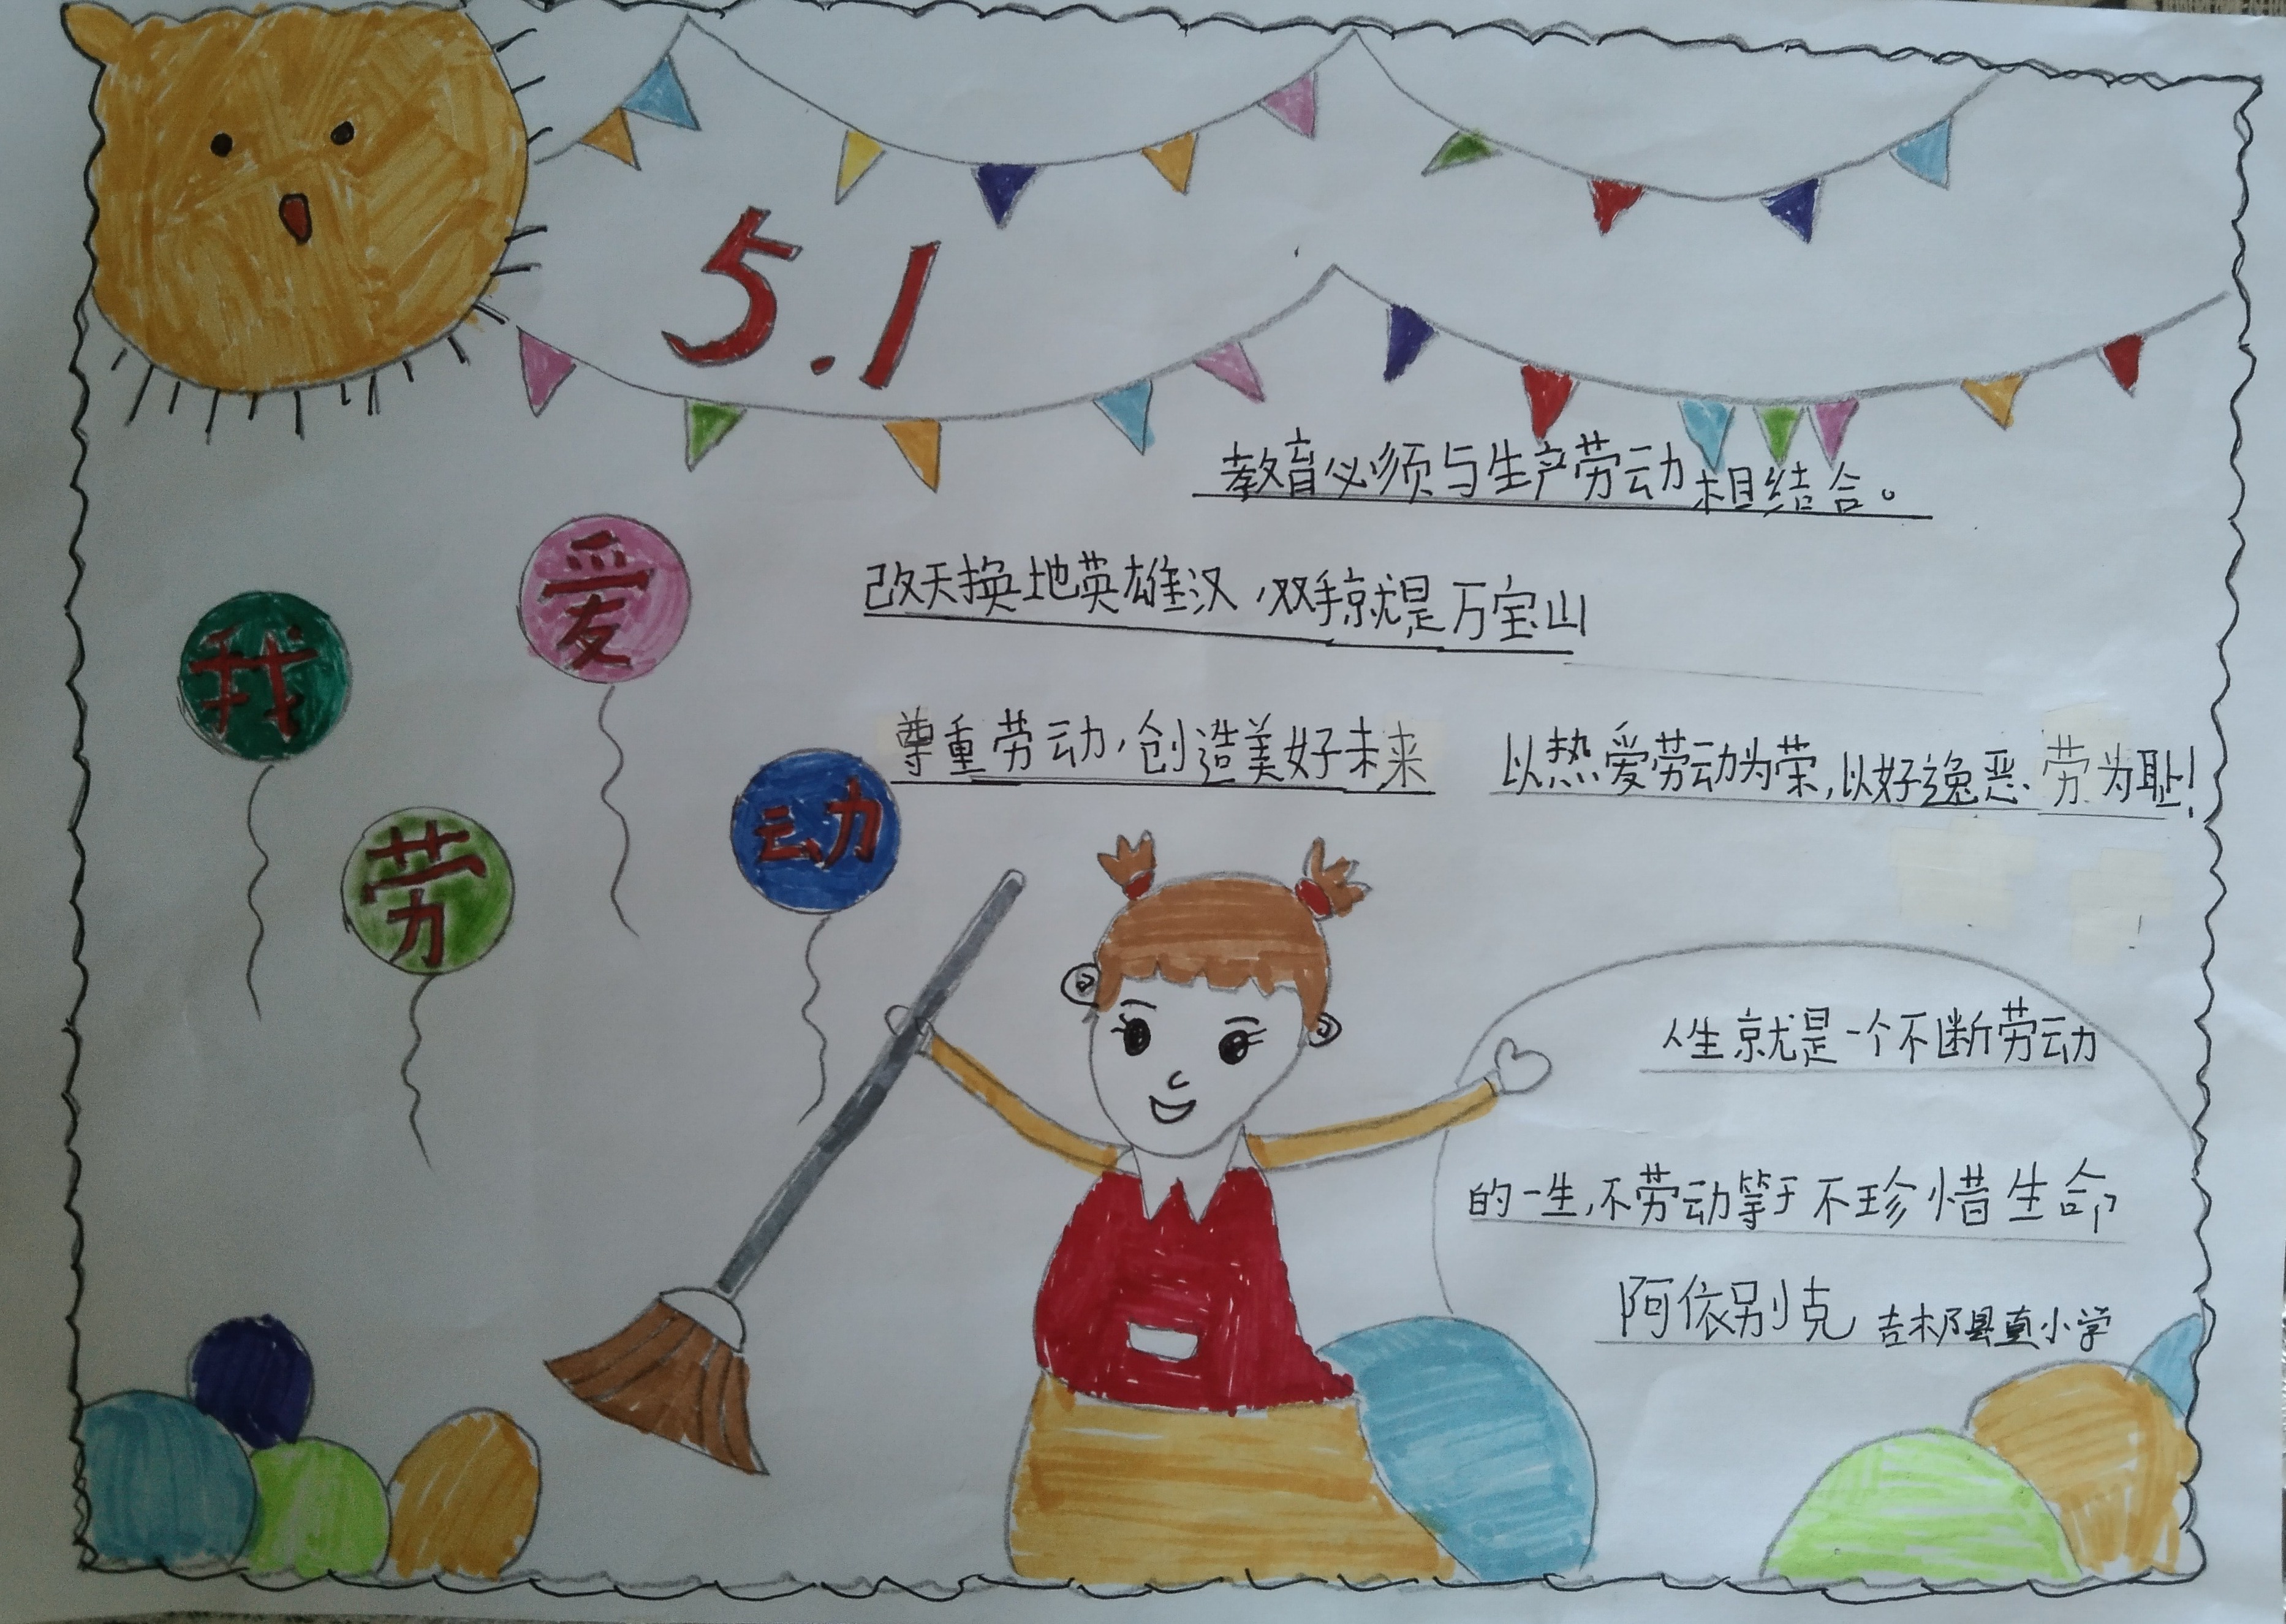 5.1
教育必须与生产劳动相结合。
改天换地英雄汉,双手就是万宝山
尊重劳动,创造美好未来
以热爱劳动为荣,以好逸恶劳为耻!
我爱劳动
人生就是一个不断劳动
的一生,不劳动等于不珍惜生命
阿依别克 吉木乃县直小学